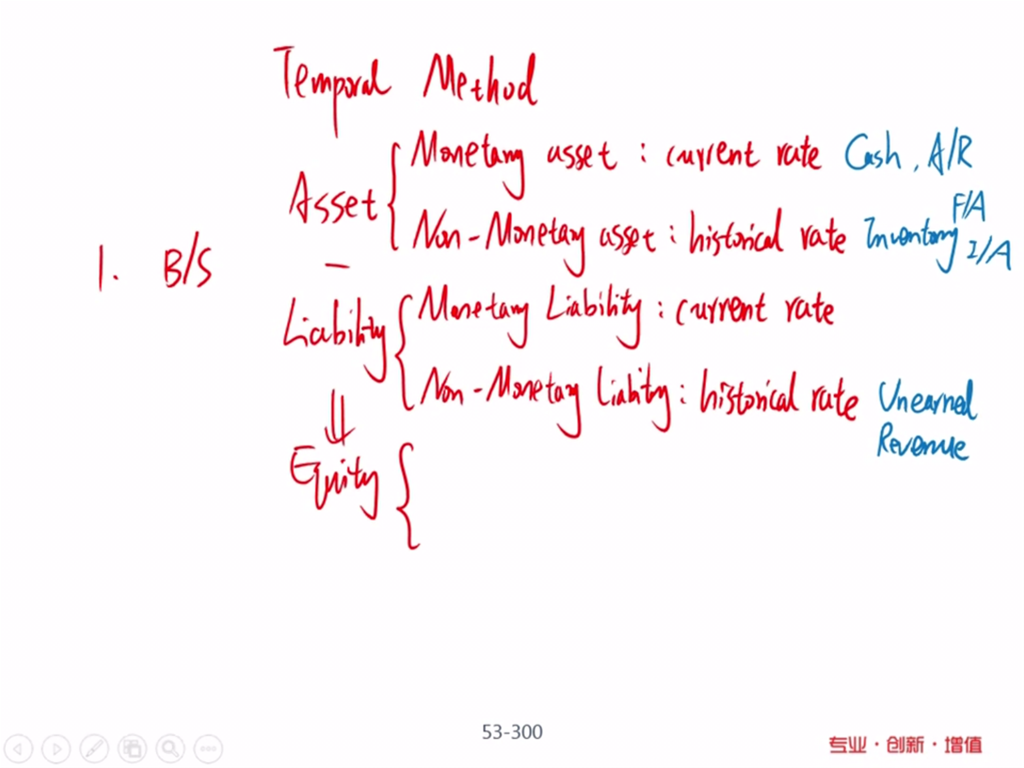 Temporal Method
Monetary asset : current rate Cash, A/R
Asset
Non-Monetary asset : historical rate Inventory F/A I/A
1. B/S
Monetary Liability : current rate
Liability
Non-Monetary Liability : historical rate Unearned
Revenue
Equity
53-300
专业·创新·增值